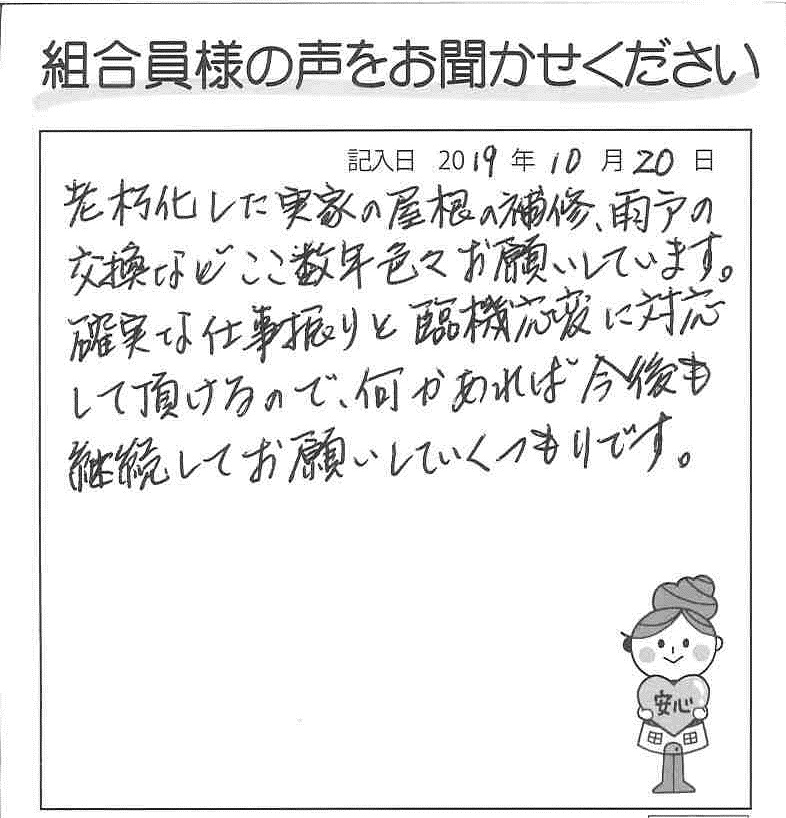 組合員様の声をお聞かせください
記入日 2019年10月20日
老朽化した実家の屋根の補修、雨戸の
交換などここ数年色々お願いしています。
確実な仕事振りと臨機応変に対応
して頂けるので、何かあれば今後も
継続してお願いしていくつもりです。
安心